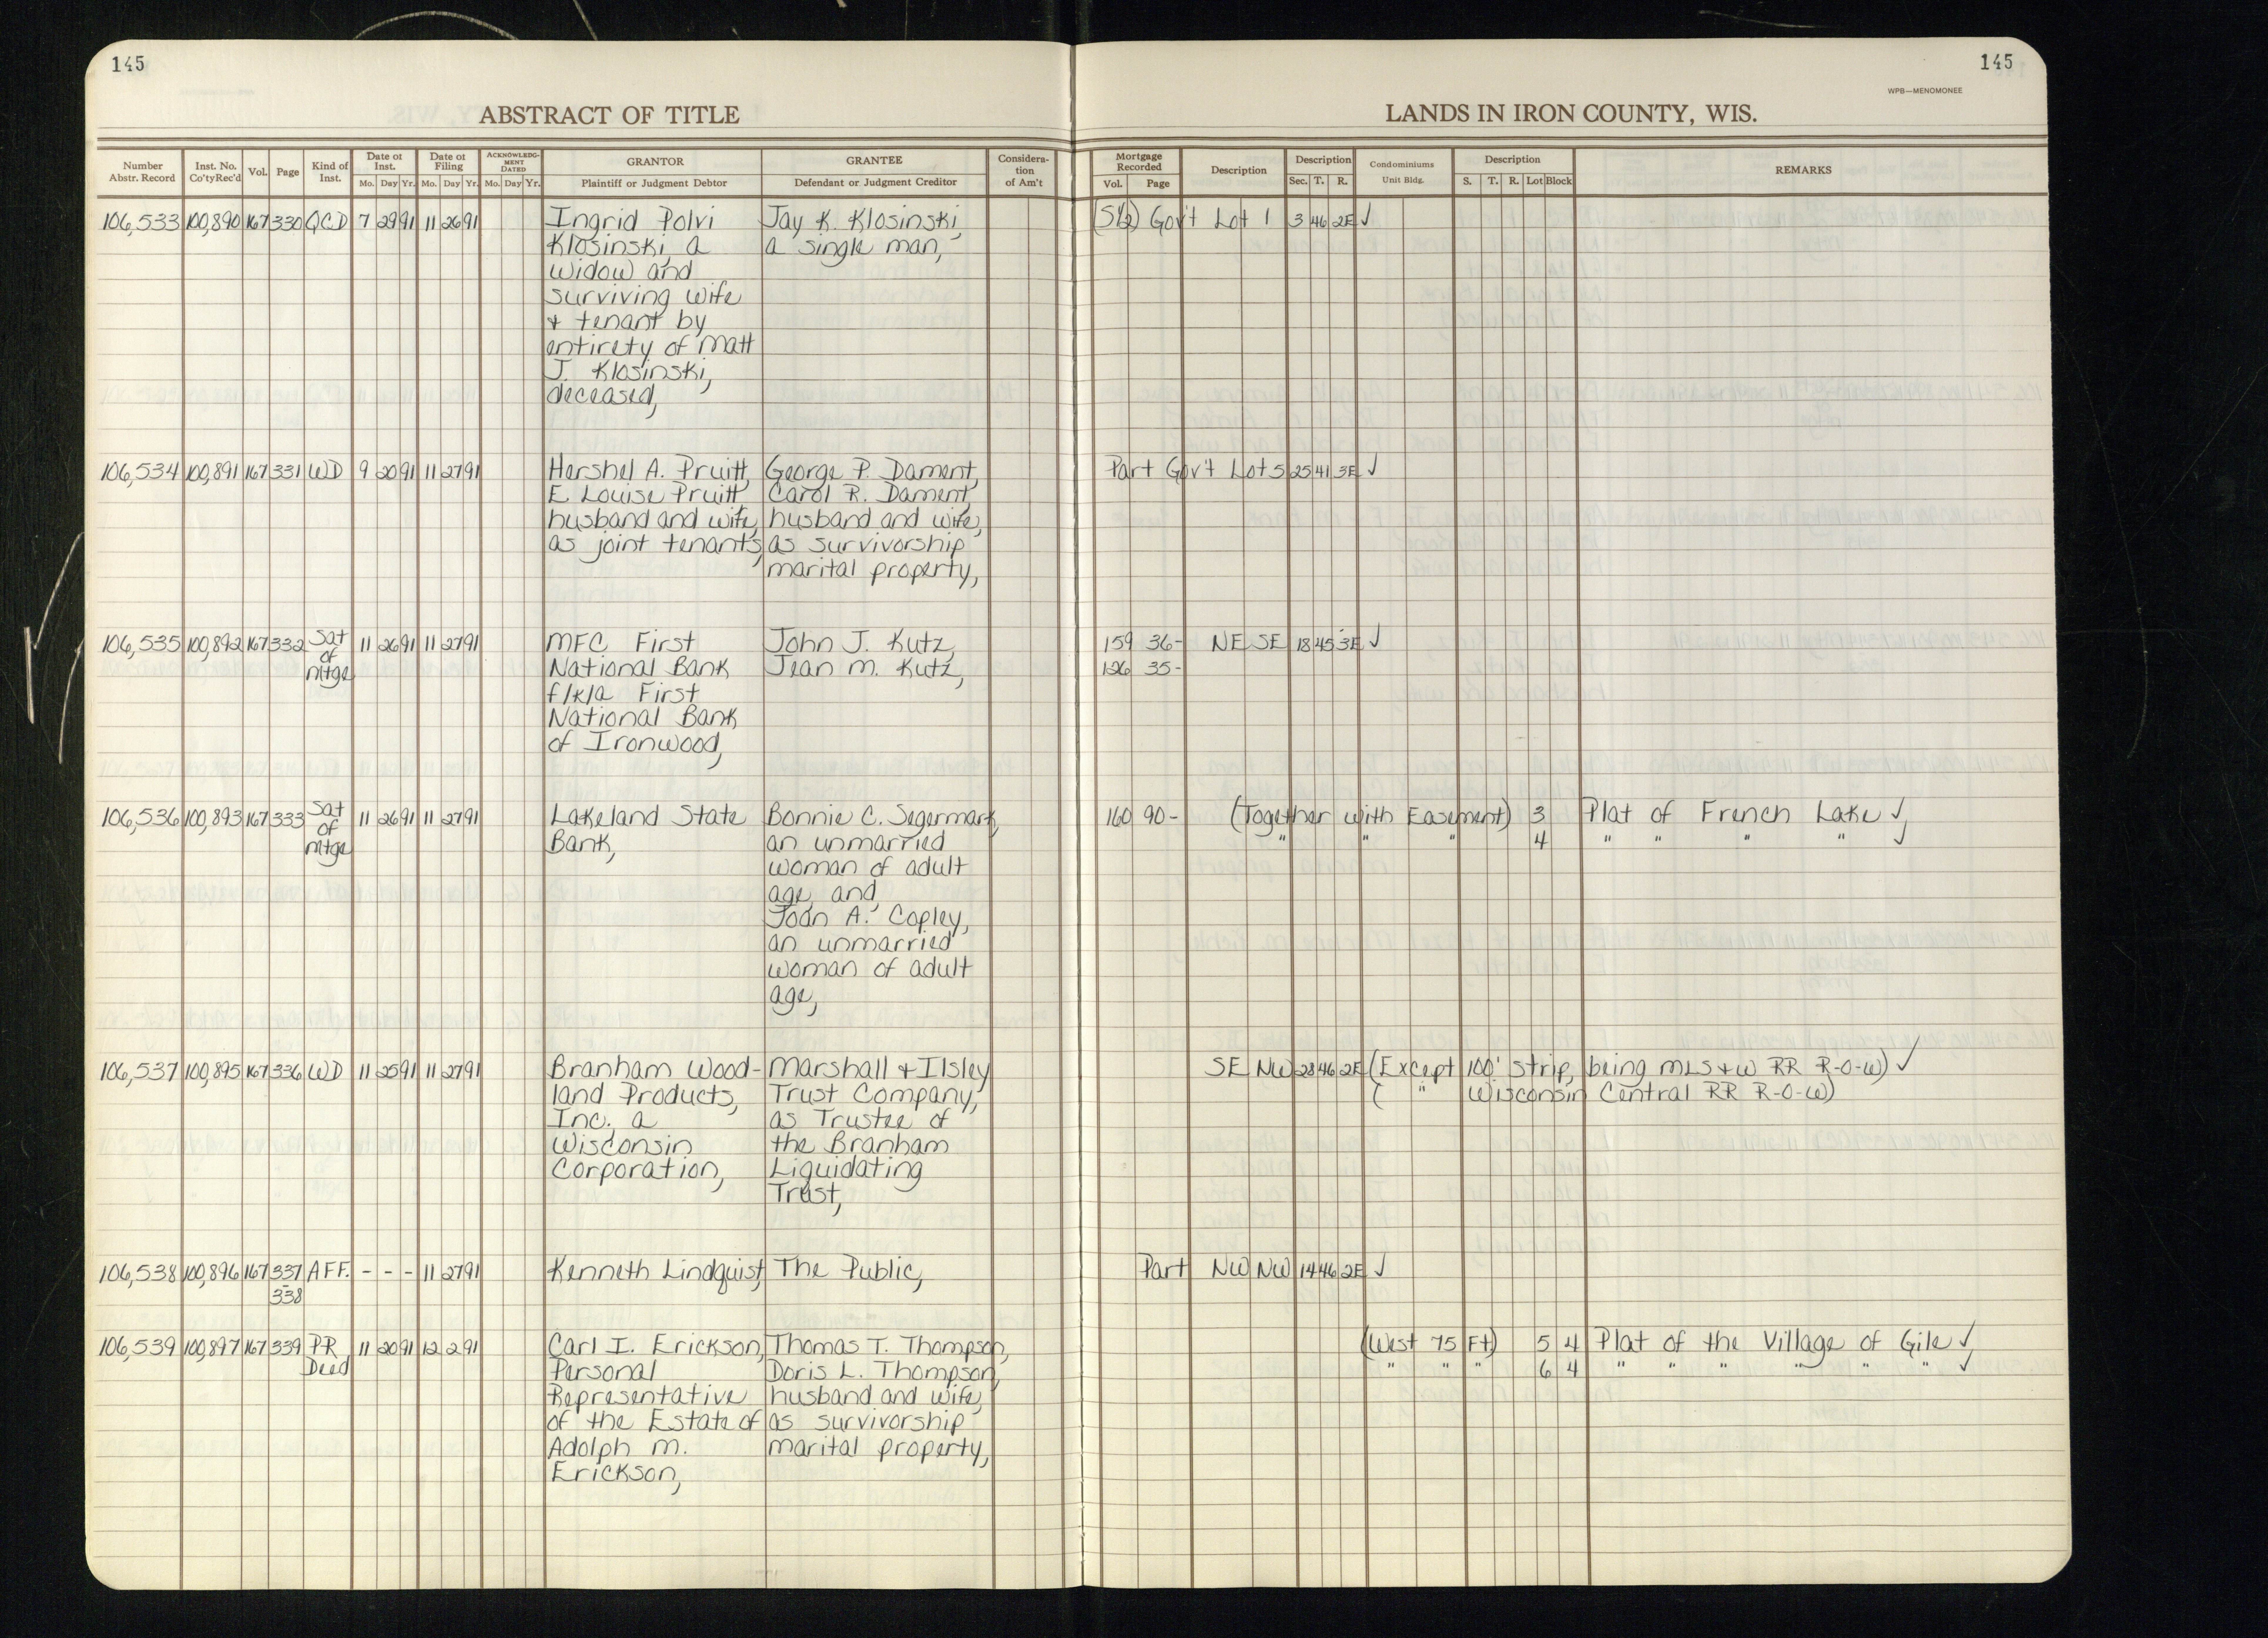 145
145
WPB—MENOMONEE
ABSTRACT OF TITLE
LANDS IN IRON COUNTY, WIS.
Number Abstr. Record | Inst. No. Co'ty Rec'd | Vol. | Page | Kind of Inst. | Date of Inst. Mo. Day Yr. | Date of Filing Mo. Day Yr. | ACKNOWLEDGMENT DATED Mo. Day Yr. | GRANTOR Plaintiff or Judgment Debtor | GRANTEE Defendant or Judgment Creditor | Consideration of Am't | Mortgage Recorded Vol. Page | Description | Description Sec. T. R. | Condominiums Unit Bldg. | Description S. T. R. Lot Block | REMARKS
106,533 100,890 167 330 QCD 7 29 91 11 26 91 Ingrid Polvi Jay K. Klosinski, (S1/2) Gov't Lot 1 3 46 2E ✓
Klosinski, a a single man,
widow and
surviving wife
& tenant by
entirety of Matt
J. Klosinski,
deceased,
106,534 100,891 167 331 WD 9 20 91 11 27 91 Hershel A. Pruitt, George P. Dament, Part Gov't Lot 5 25 41 3E ✓
E. Louise Pruitt, Carol R. Dament,
husband and wife, husband and wife,
as joint tenants, as survivorship
marital property,
106,535 100,892 167 332 Sat 11 26 91 11 27 91 MFC First John J. Kutz, 159 36- NE SE 18 45 3E ✓
of
mtge National Bank Jean M. Kutz, 126 35-
f/k/a First
National Bank
of Ironwood,
106,536 100,893 167 333 Sat 11 26 91 11 27 91 Lakeland State Bonnie C. Segermark, 160 90- (Together with Easement) 3 Plat of French Lake ✓
of
mtge Bank, an unmarried " " " 4 " " " " ✓
woman of adult
age, and
Joan A. Copley,
an unmarried
woman of adult
age,
106,537 100,895 167 336 WD 11 25 91 11 27 91 Branham Wood- Marshall & Ilsley SE NW 28 46 2E (Except 100' strip, being MLS&W RR R-O-W) ✓
land Products, Trust Company, ( " Wisconsin Central RR R-O-W)
Inc. a as Trustee of
Wisconsin the Branham
Corporation, Liquidating
Trust,
106,538 100,896 167 337 AFF. - - - 11 27 91 Kenneth Lindquist, The Public, Part NW NW 14 46 2E ✓
-
338
106,539 100,897 167 339 PR 11 20 91 12 2 91 Carl I. Erickson, Thomas T. Thompson, (West 75 Ft) 5 4 Plat of the Village of Gile ✓
Deed Personal Doris L. Thompson, " " " 6 4 " " " " " " ✓
Representative husband and wife,
of the Estate of as survivorship
Adolph M. marital property,
Erickson,